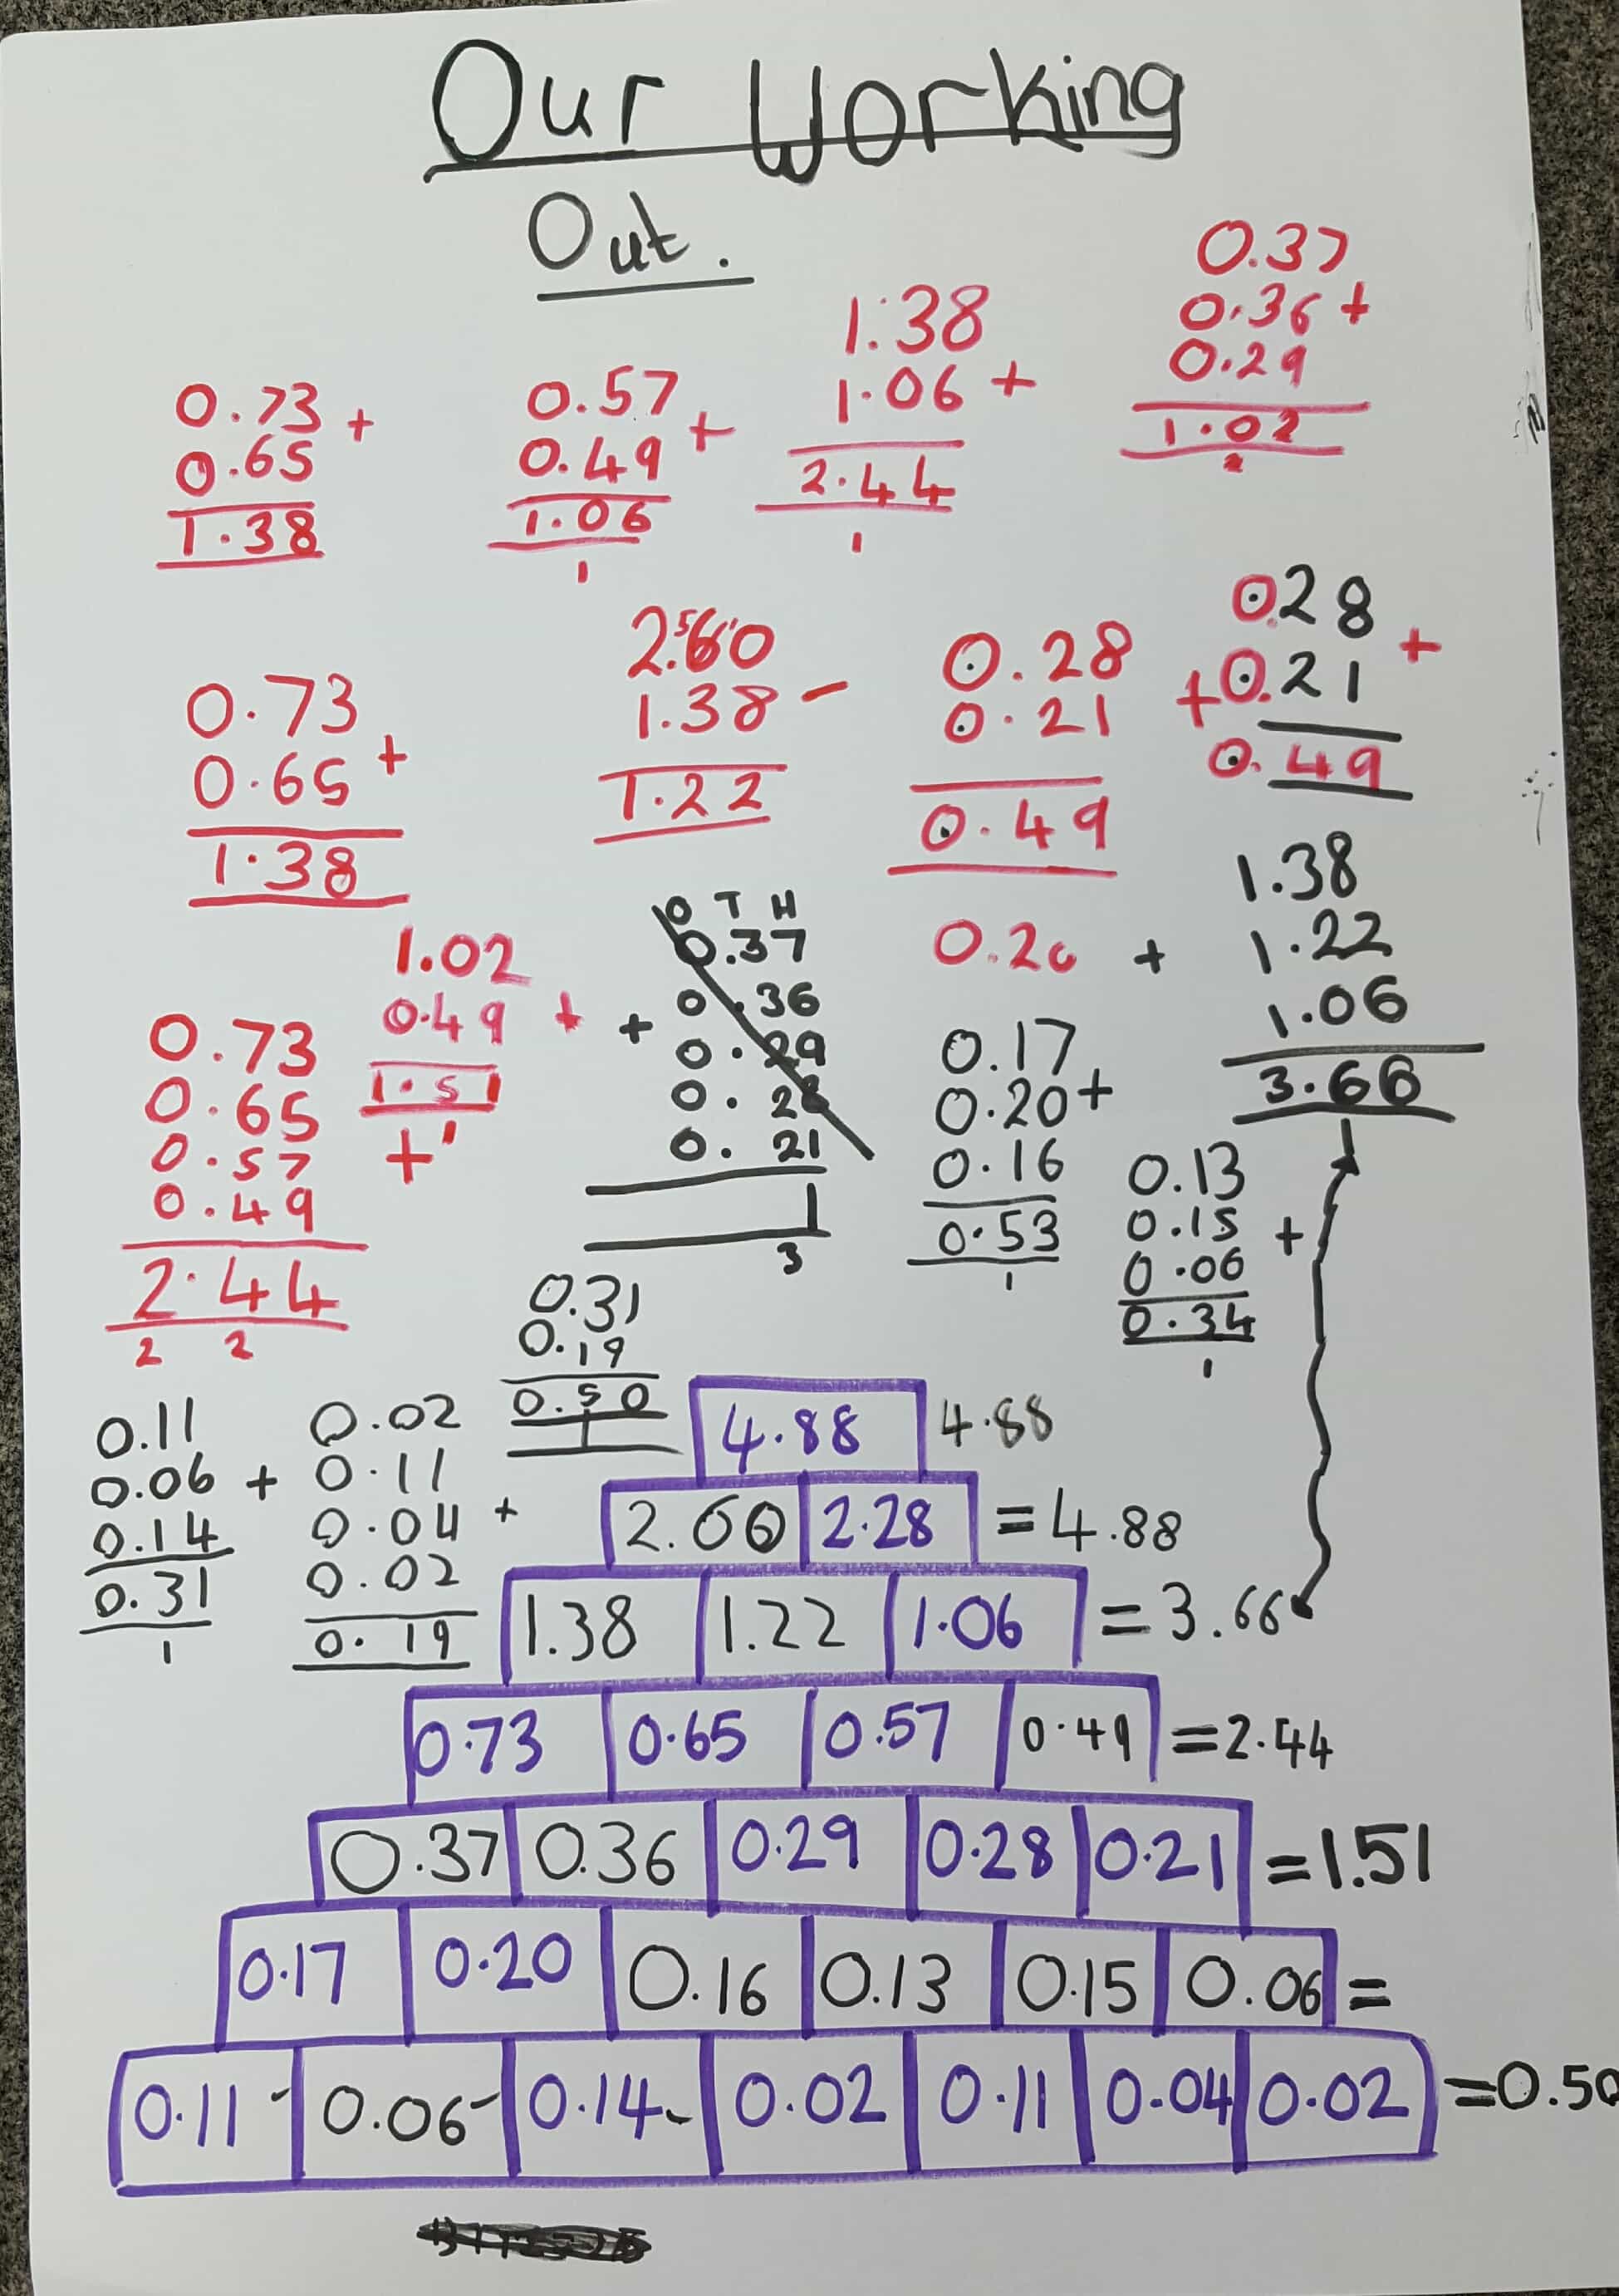 Our Working
Out.
0.73 +
0.65
1.38
0.57
0.49 +
1.06
1
1.38
1.06 +
2.44
1
0.37
0.36 +
0.29
1.02
2
0.73
0.65 +
1.38
2.60
5 1
1.38 -
1.22
0.28
0.21 +
0.49
0.28
0.21 +
0.49
1.02
0.49 +
1.51
1
0.73
0.65
0.57 +
0.49
2.44
2 2
O T H
0.37
0.36
+ 0.29
0.28
0.21
1
3
0.20 +
0.17
0.20 +
0.16
0.53
1
1.38
1.22
1.06
3.66
0.13
0.15 +
0.06
0.34
1
0.31
0.19
0.50
1
0.11
0.06 +
0.14
0.31
1
0.02
0.11
0.04 +
0.02
0.19
4.88 4.88
2.60 2.28 = 4.88
1.38 1.22 1.06 = 3.66
0.73 0.65 0.57 0.49 = 2.44
0.37 0.36 0.29 0.28 0.21 = 1.51
0.17 0.20 0.16 0.13 0.15 0.06 =
0.11 0.06 0.14 0.02 0.11 0.04 0.02 = 0.50